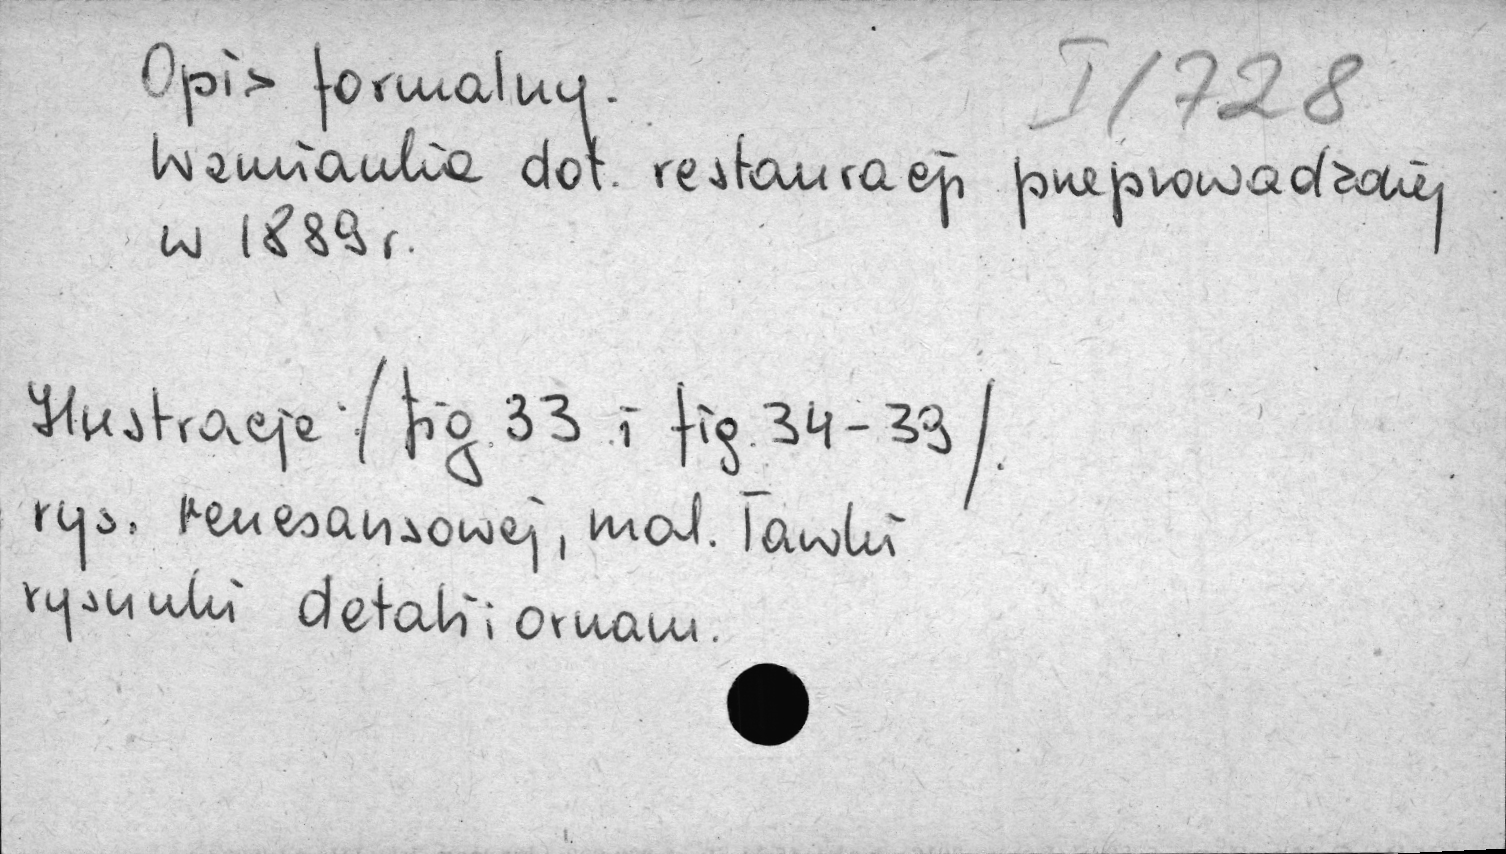 I/728
Opis formalny.
Wzmianka dot. restauracji przeprowadzonej
w 1889 r.
Ilustracje: /fig. 33 i fig. 34-39/.
rys. renesansowej, mal. ławki
rysunki detali i ornam.